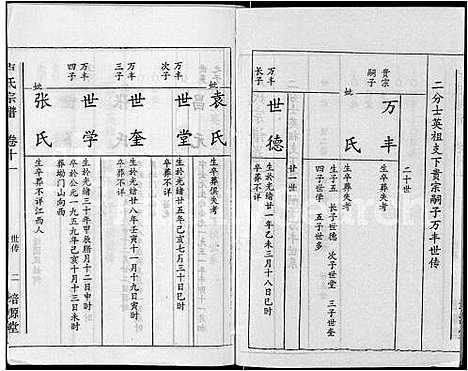 二分士英祖支下贵宗嗣子万丰世传
二十世
贵宗嗣子
万丰
生卒葬失考
妣 氏
生卒葬失考
生子五 长子世德 次子世堂 三子世奎
四子世学 五子世多
廿一世
万丰长子
世德
生於光绪廿一年乙未三月十八日巳时
卒葬不详
妣袁氏
生卒葬俱失考
万丰次子
世堂
生於光绪廿五年己亥七月三十日巳时
卒葬不详
万丰三子
世奎
生於光绪廿八年壬寅十一月十九日寅时
卒葬不详
万丰四子
世学
生於光绪三十年甲辰腊月十二日申时
卒於公元一九五九年己亥十月十三日未时
葬坳门山向西
妣张氏
生卒葬不详江西人
氏宗谱 卷十一
世传
二
培源堂